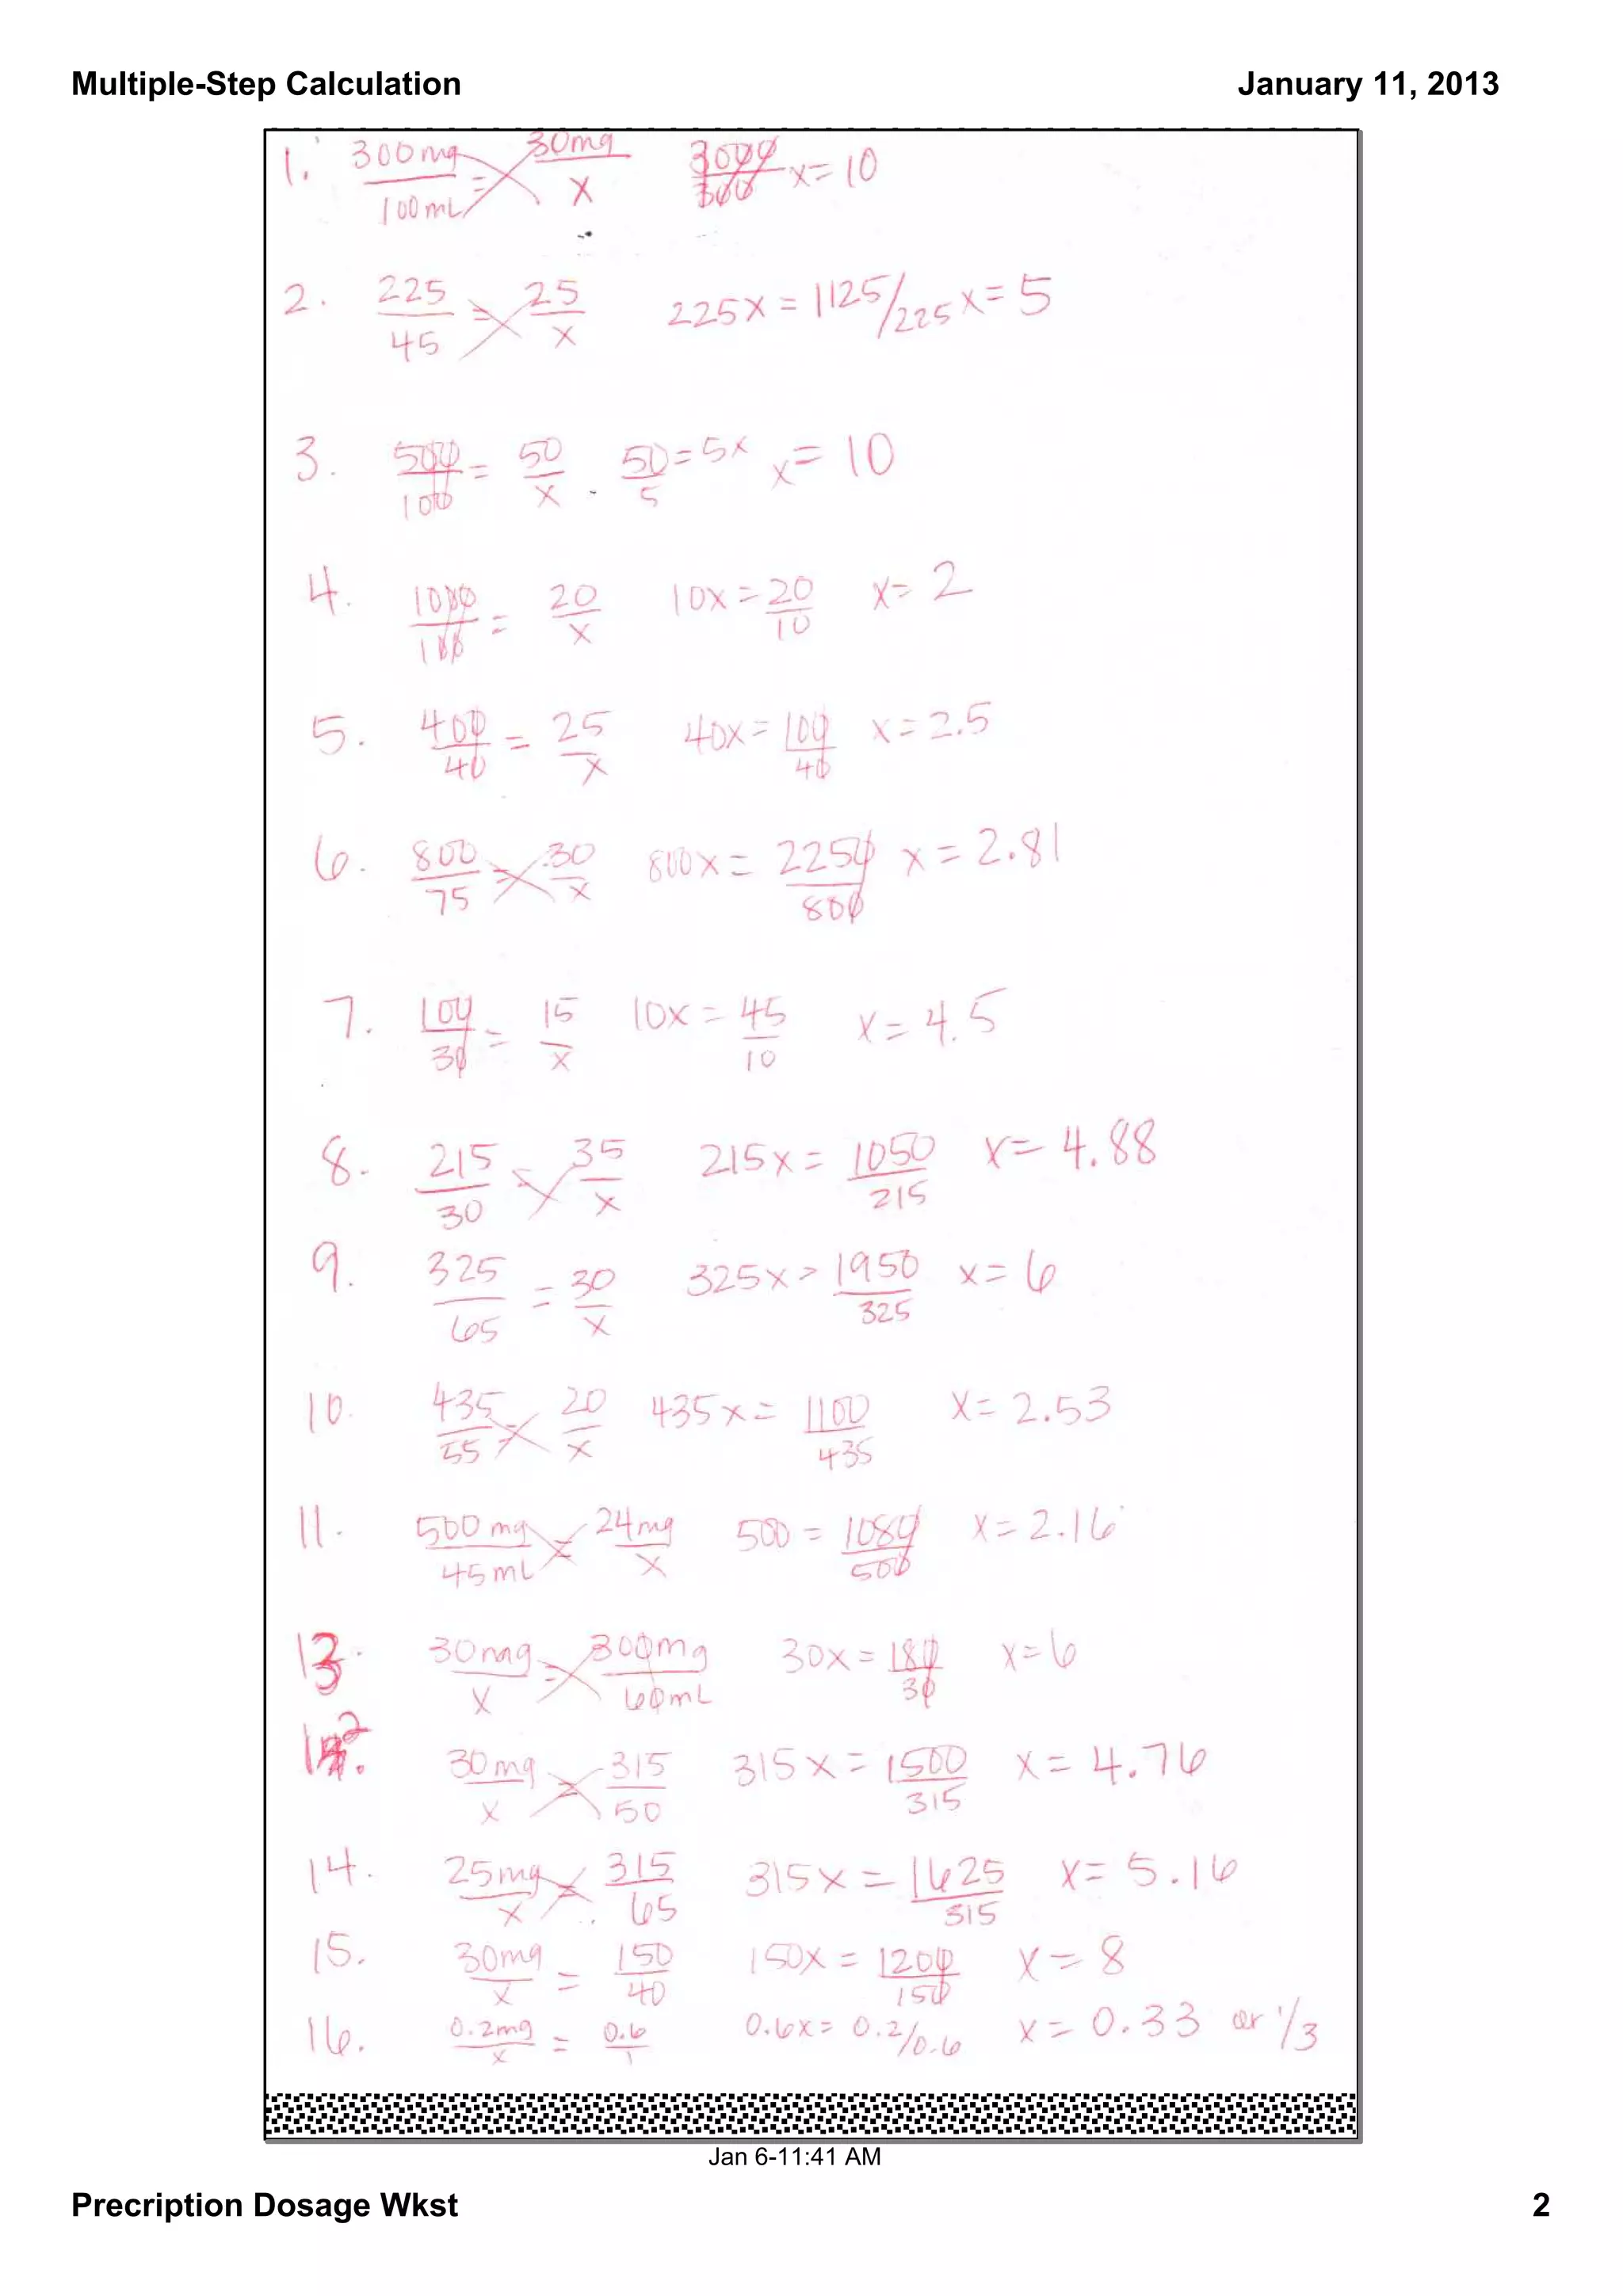 Multiple-Step Calculation January 11, 2013
1. 300mg/100mL = 30mg/x 3000/300 x=10
2. 225/45 = 25/x 225x = 1125/225 x=5
3. 500/100 = 50/x 50/5 = 5x x= 10
4. 1000/100 = 20/x 10x = 20/10 x= 2
5. 400/40 = 25/x 40x = 100/40 x=2.5
6. 800/75 = 30/x 800x = 2250/800 x = 2.81
7. 100/30 = 15/x 10x = 45/10 x= 4.5
8. 215/30 = 35/x 215x = 1050/215 x= 4.88
9. 325/65 = 30/x 325x = 1950/325 x= 6
10. 435/55 = 20/x 435x = 1100/435 x= 2.53
11. 500 mg/45 mL = 24mg/x 500 = 1080/500 x= 2.16
13. 30mg/x = 300mg/60mL 30x = 180/30 x=6
12. 30mg/x = 315/50 315x = 1500/315 x= 4.76
14. 25mg/x = 315/65 315x = 1625/315 x= 5.16
15. 30mg/x = 150/40 150x = 1200/150 x= 8
16. 0.2mg/x = 0.6/1 0.6x= 0.2/0.6 x= 0.33 or 1/3
Jan 6-11:41 AM
Precription Dosage Wkst 2